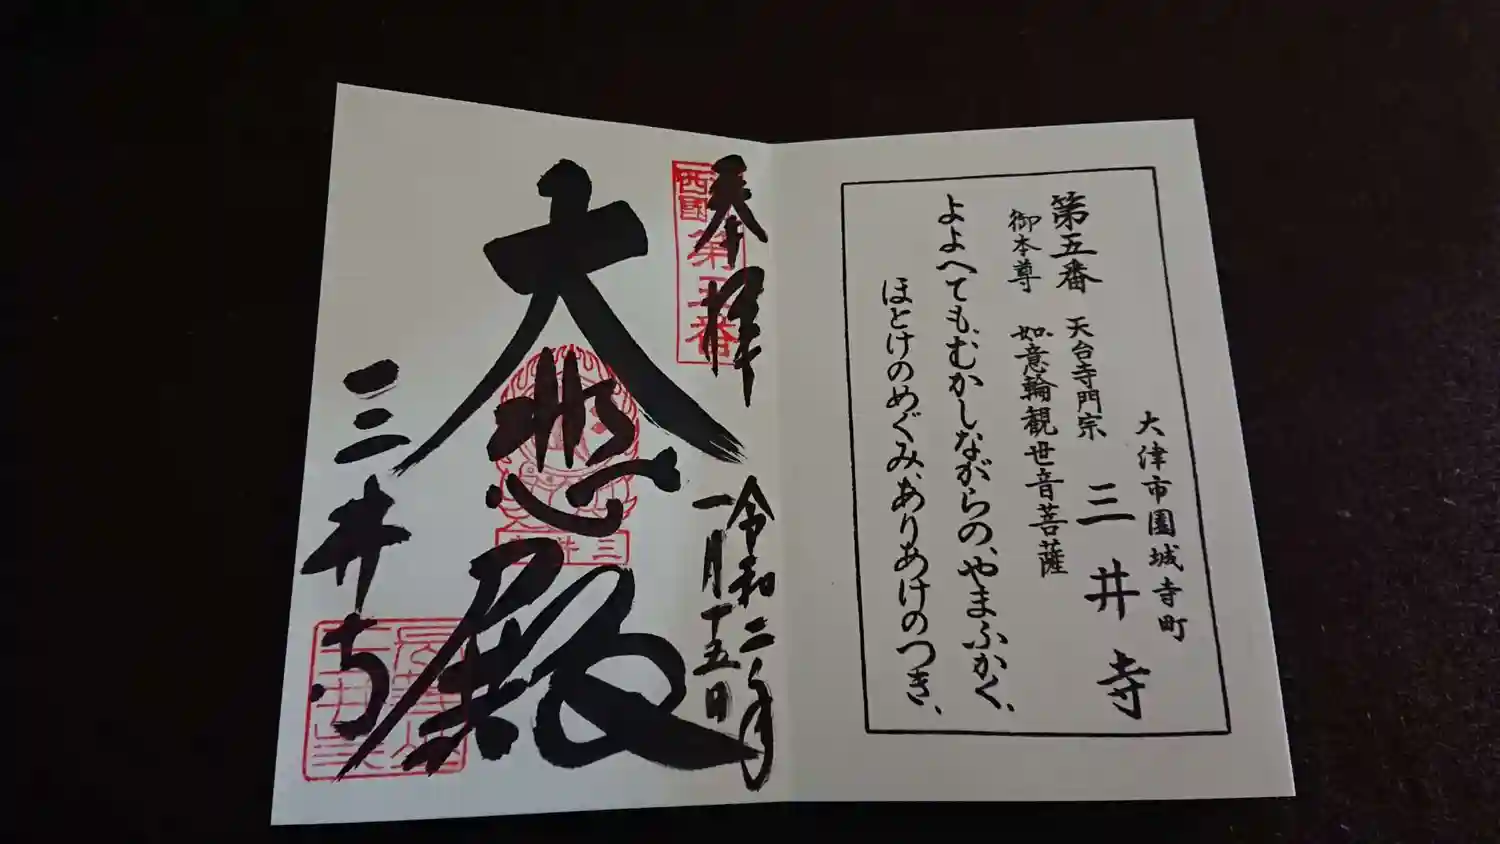 大津市園城寺町
第五番 天台寺門宗 三井寺
御本尊 如意輪観世音菩薩
よよへても、むかしながらの、やまふかく、
ほとけのめぐみ、ありあけのつき、
奉拝 令和二年
一月十五日
西国
第五番
大悲殿
三井寺
三井寺